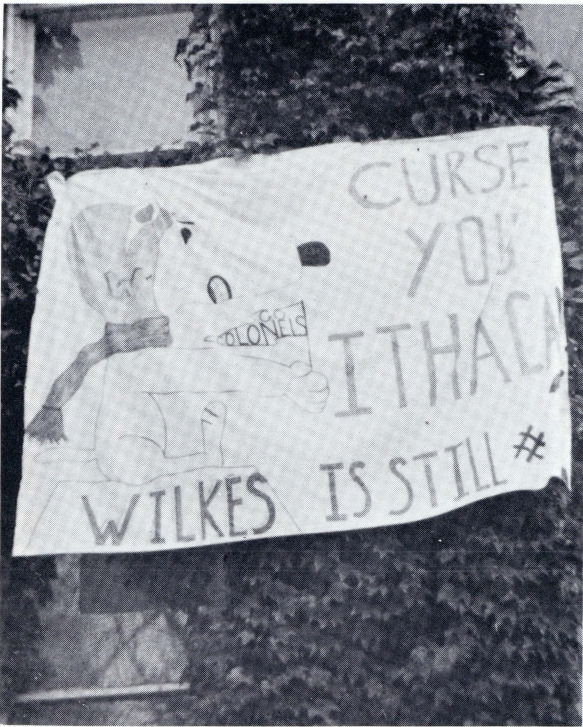 CURSE
YOU
ITHACA
W
GO
COLONELS
WILKES IS STILL #